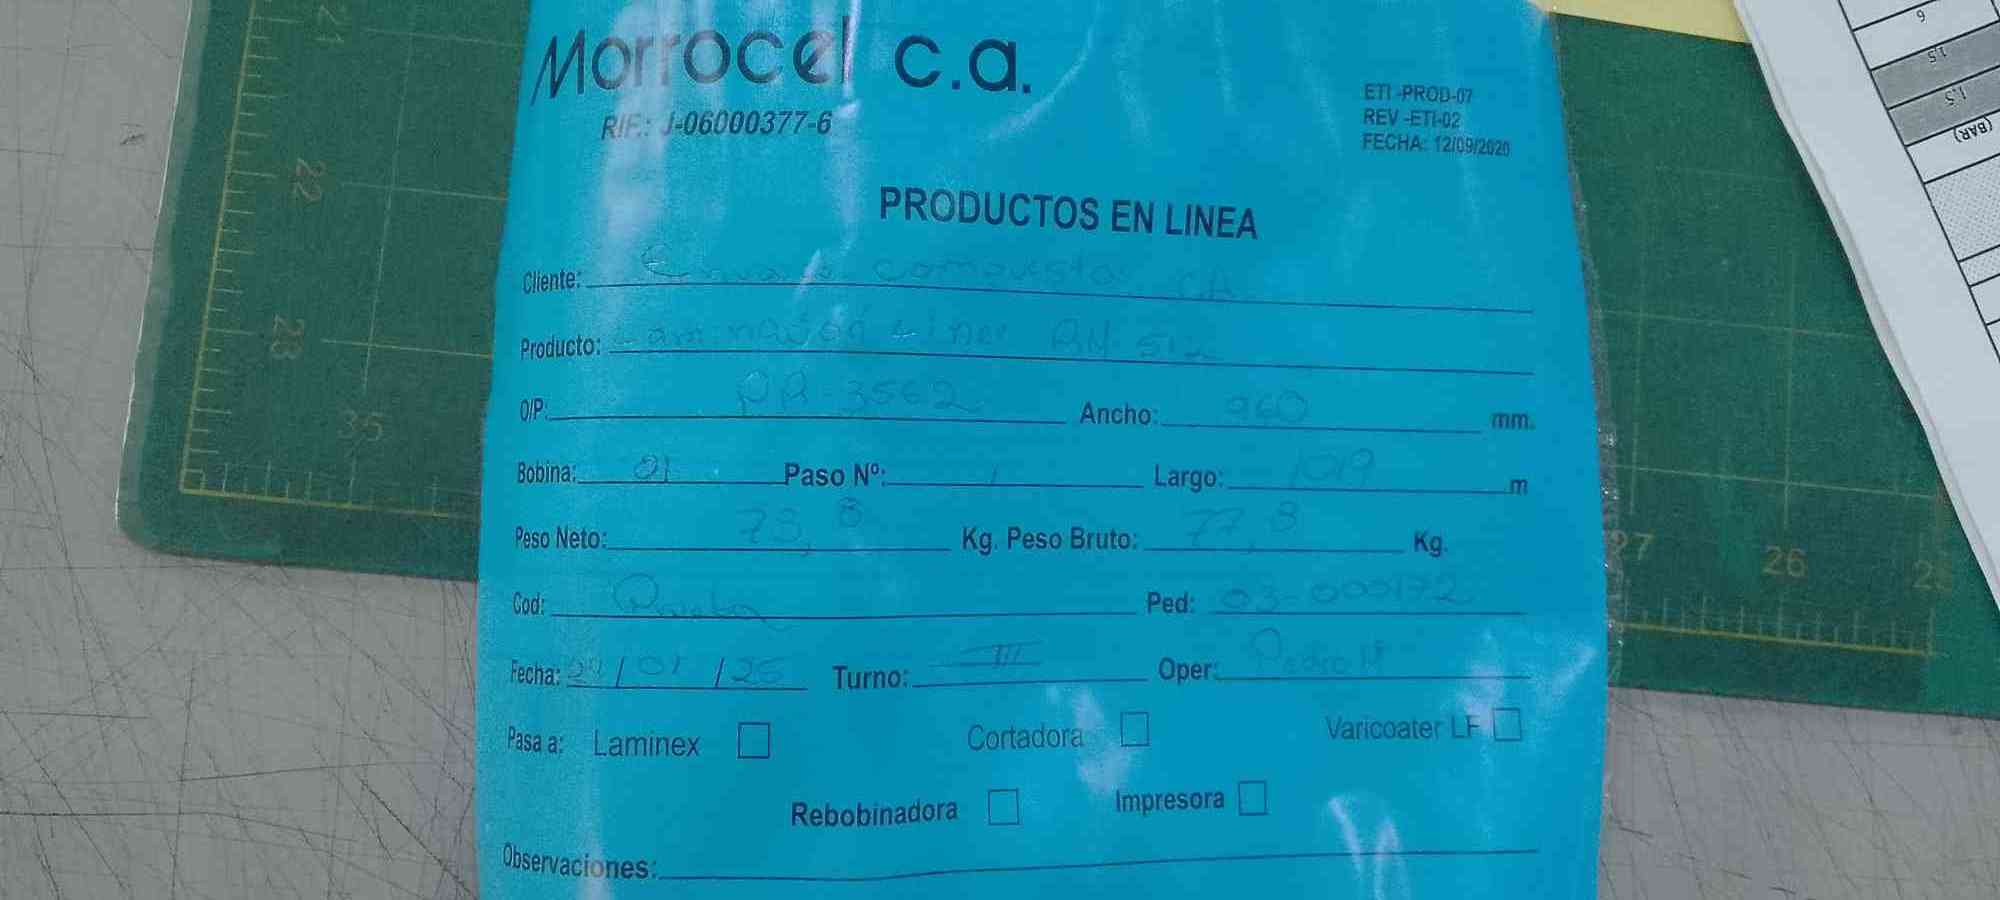 Morrocel c.a.
RIF.: J-06000377-6
ETI -PROD-07
REV -ETI-02
FECHA: 12/09/2020
PRODUCTOS EN LINEA
Cliente: compuestos C.A.
Producto: Laminación Liner
O/P: 3562 Ancho: 960 mm.
Bobina: 01 Paso Nº: 1 Largo: 1019 m
Peso Neto: 73,8 Kg. Peso Bruto: 77,8 Kg.
Cod: Ped: 03-000172
Fecha: /01 /25 Turno: III Oper: Pedro M
Pasa a: Laminex Cortadora Varicoater LF
Rebobinadora Impresora
Observaciones:
21
22
23
35
27
26
25
6
1,5
1,5
(BAR)